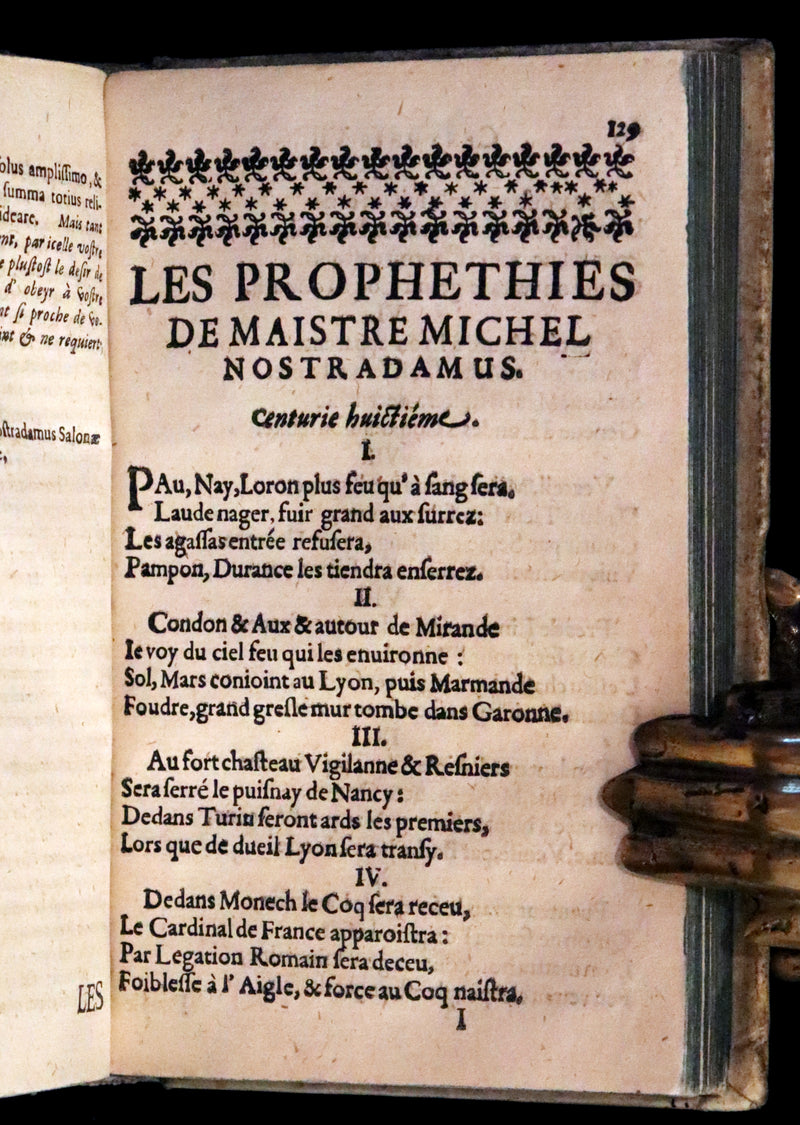 olus ampliſſimo, &
ſumma totius reli-
ideare. Mais tant
nt, par icelle voſtre
e pluſtoſt le deſir de
d' obeyr à voſtre
nt ſi proche de vo-
int & ne requiert
ſtradamus Salonæ
LES
129
LES PROPHETHIES
DE MAISTRE MICHEL
NOSTRADAMUS.
Centurie huictiéme.
I.
PAu, Nay, Loron plus feu qu' à ſang ſera,
Laude nager, fuir grand aux ſurrez:
Les agaſſas entrée refuſera,
Pampon, Durance les tiendra enſerrez.
II.
Condon & Aux & autour de Mirande
Ie voy du ciel feu qui les enuironne :
Sol, Mars conioint au Lyon, puis Marmande
Foudre, grand greſle mur tombe dans Garonne.
III.
Au fort chaſteau Vigilanne & Reſniers
Sera ſerré le puiſnay de Nancy:
Dedans Turin ſeront ards les premiers,
Lors que de dueil Lyon ſera tranſy.
IV.
Dedans Monech le Coq ſera receu,
Le Cardinal de France apparoiſtra :
Par Legation Romain ſera deceu,
Foibleſſe à l' Aigle, & force au Coq naiſtra.
I